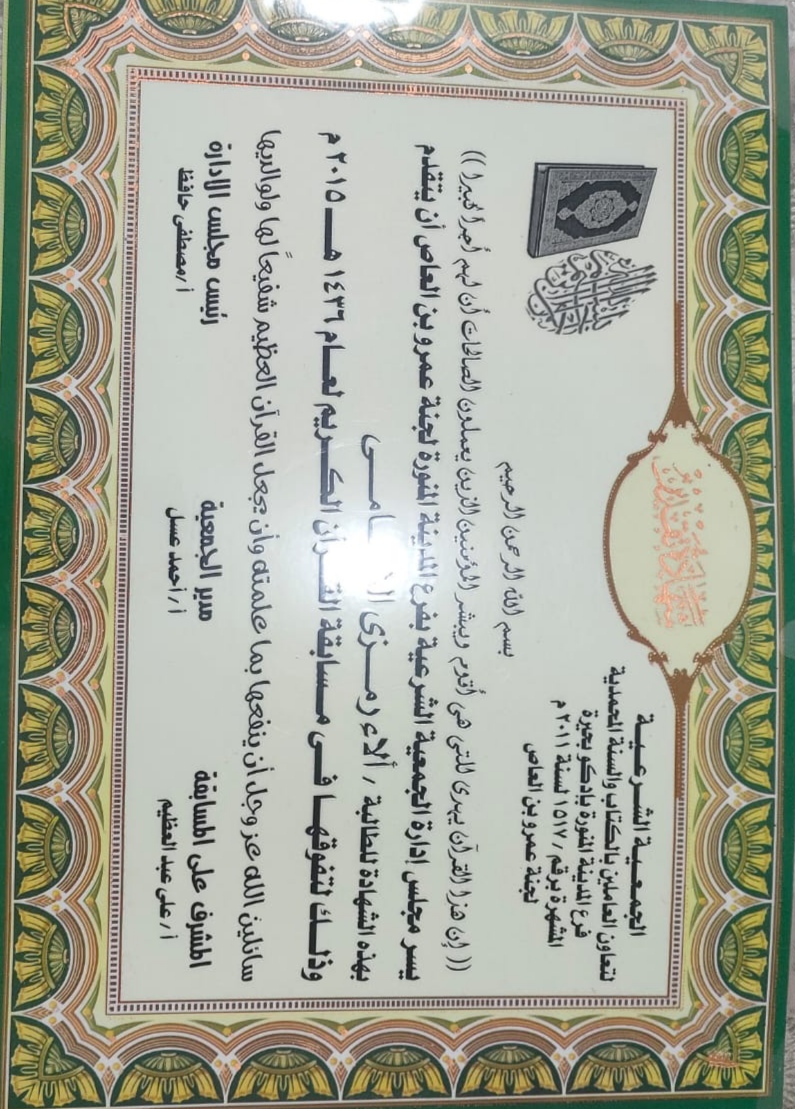 شهادة تقدير
الجمعية الشرعية
لتعاون العاملين بالكتاب والسنة المحمدية
فرع المدينة المنورة بادكو بحيرة
المشهرة برقم / ١٥١٧ لسنة ٢٠١١ م
لجنة عمرو بن العاص
بسم الله الرحمن الرحيم
(( إن هذا القرآن يهدى للتى هى أقوم ويبشر المؤمنين الذين يعملون الصالحات أن لهم أجرا كبيرا ))
يسر مجلس إدارة الجمعية الشرعية بفرع المدينة المنورة لجنة عمرو بن العاص أن يتقدم
بهذه الشهادة للطالبة / ألاء رمزى
وذلك لتفوقها فى مسابقة القرآن الكريم لعام ١٤٣٦ هـ ٢٠١٥ م
سائلين الله عز وجل أن ينفعها بما علمته وأن يجعل القرآن العظيم شفيعاً لها ولوالديها
المشرف على المسابقة مدير الجمعية رئيس مجلس الادارة
أ / على عبد العظيم أ / أحمد عسل أ / مصطفى حافظ